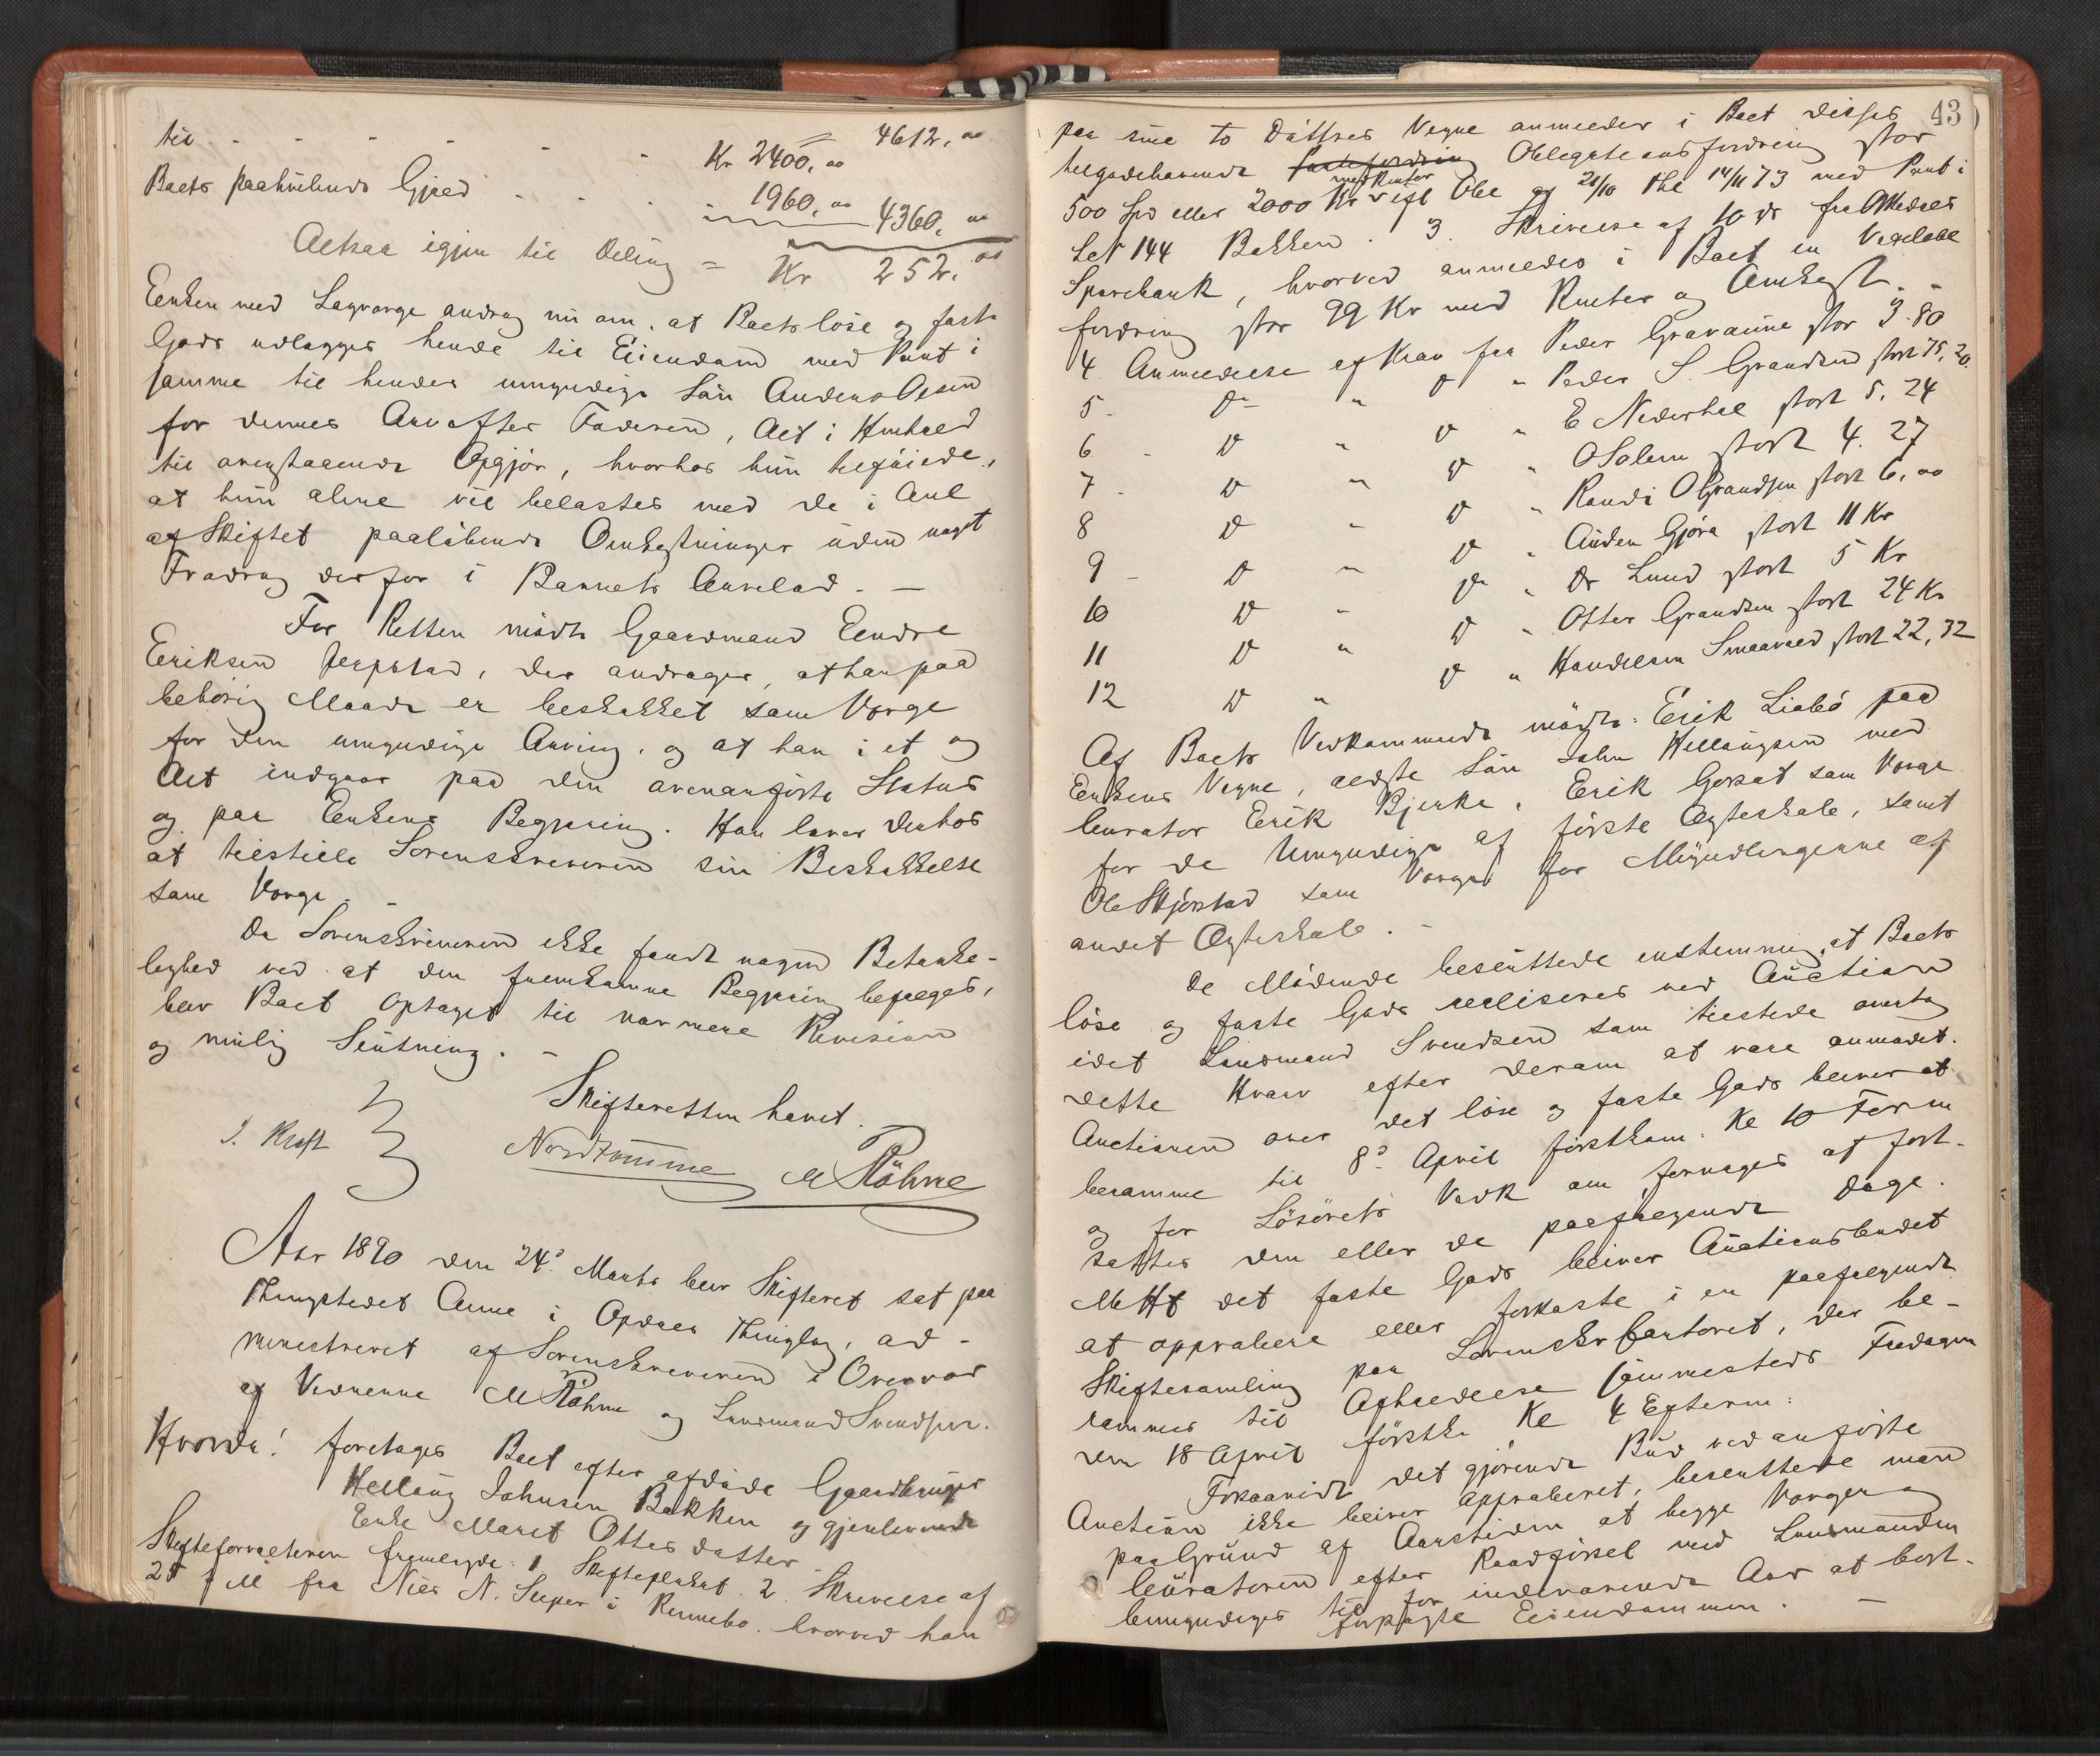 til - - - - - Kr 2400,00 4612,00
Boets paahvilende Gjæld - - - 1960,00 4360,00
Altsaa igjen til Deling = Kr 252,00
Enken med Lagværge androg nu om, at Boets løse og faste
Gods udlægges hende til Eiendom med Pant i
samme til hendes umyndige Søn Anders Olsen
for dennes Arv efter Faderen, Alt i Henhold
til ovenstaaende Opgjør, hvorhos hun tilføiede,
at hun alene vil belastes med de i Anl
af Skiftet paaløbende Omkostninger uden noget
Fradrag derfor i Barnets Arvelod. —
For Retten mødte Gaardmand Endre
Eriksen , der androges, at han paa
behørig Maade er beskikket som Værge
for den umyndige Arving, og at han i et og
Alt indgaar paa den ovenanførte Status
og paa Enkens Begjæring. Han lover derhos
at tilstille Sorenskriveren sin Beskikkelse
som Værge. -
Da Sorenskriveren ikke fandt nogen Betænke-
lighed ved at den fremkomne Begjæring befølges,
blev Boet optaget til nærmere Revision
og mulig Slutning. -
Skifteretten hævet.
J. Kraft Nordtømme M Røhne
Aar 1890 den 24de Marts blev Skifteret sat paa
Thingstedet Aune i Opdals Thinglag, ad-
ministreret af Sorenskriveren i Overvær
af Vidnerne M Røhne og Lensmand Svendsen.
Hvorda! foretoges Boet efter afdøde Gaardbruger
Hellaug Johnsen Bakken og gjenlevende
Enke Marit Ottersdatter
Skifteforvalteren fremlagde: 1 Skifteplakat. 2 Skrivelse af
25 f M fra Nils N. i Rennebo. hvorved han
43
paa sine to Døttres Vegne anmelder i Boet disses
tilgodehavende Obligationsfordring stor
med Renter
500 Spd eller 2000 Kr efl Obl af 21/10 thl 14/11 73 med Pant i
LN 144 Bakken. 3. Skrivelse af 10 ds fra Opdals
Sparebank, hvorved anmeldes i Boet en Vexelobl
fordring stor 99 Kr med Renter og Omkost. -
4 Anmeldelse af Krav fra Peder Gravaune stor 3.80
5 - Do - " D " Peder S. Grandsen stort 75,20.
6 - D " D " E Nederhol stort 5,24
7 - D " D " O Solem stort 4.27
8 D " D " Randi O Grandsen stort 6,00
9 - D " D " Auden Gjøra stort 11 Kr
10 D " D " Dr Lund stort 5 Kr
11 D " D " Otter Grandsen stort 24 Kr
12 D " D " Handelsm Smaavold stort 22,32
Af Boets Vedkommende mødte: Erik Liabø paa
Enkens Vegne, ældste Søn John Hellaugsen med
Curator Erik Bjerke, Erik Gorsæt som Værge
for de Umyndige af første Ægteskab, samt
Ole Skjørstad som Værge for Myndlingerne af
andet Ægteskab. -
De Mødende besluttede enstemmig, at Boets
løse og faste Gods realiseres ved Auction
idet Lensmand Svendsen som tilstede overtog
dette Hverv efter derom at være anmodet.
Auctionen over det løse og faste Gods bliver at
beramme til 8de April førstkom. Kl 10 Form
og for Løsørets Vedk om fornøges at fort-
sættes den eller de paafølgende Dage.
M Ht det faste Gods bliver Auctionsbudet
at approbere eller forkaste i en paafølgende
Skiftesamling paa Sorenskr Contoret, der be-
rammes til Afholdelse sammesteds Fredagen
den 18 April førstk. Kl 4 Efterm:
Forsaavidt det gjørende Bud ved anførte
Auction ikke bliver approberet, besluttede man
paa Grund af Aarstiden at begge Værger og
Curatoren efter Raadførsel med Lensmanden
bemyndiges til for indeværende Aar at bort-
forpagte Eiendommen. —